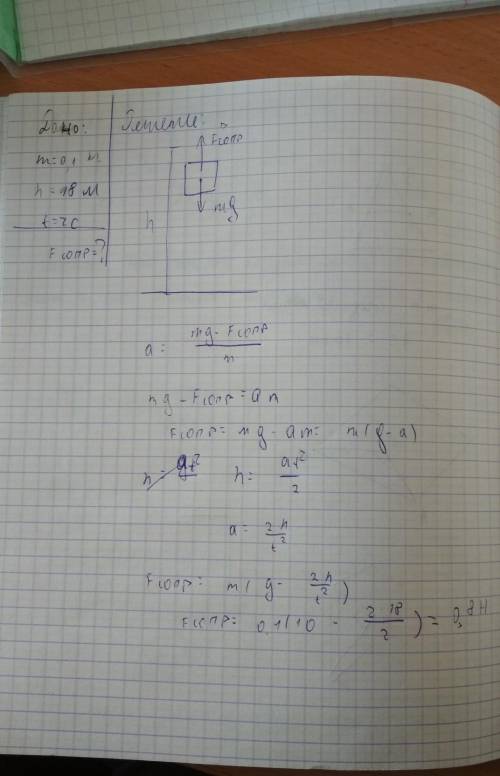 Дано:
Решение:
m=0,1 м
h=18 м
t=2c
Fсопр=?
Fсопр
mg
h
a = (mg - Fсопр)/m
mg - Fсопр = am
Fсопр = mg - am = m(g-a)
h = gt²
h = at²/2
a = 2h/t²
Fсопр = m(g - 2h/t²)
Fсопр = 0,1(10 - 2 18/2) = 0,8Н